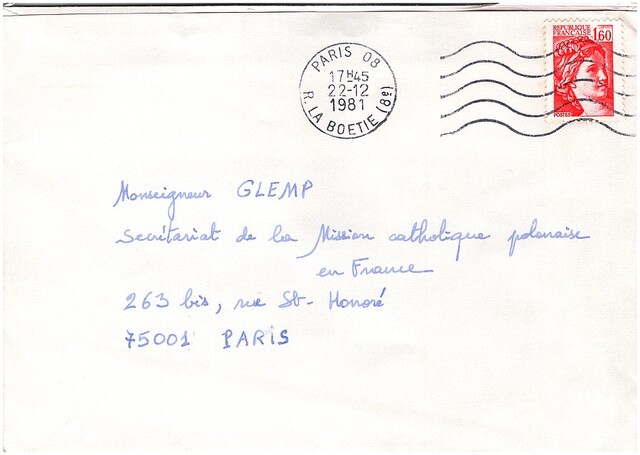 REPUBLIQUE
FRANCAISE
1,60
POSTES
PARIS 08
17H45
22-12
1981
R. LA BOETIE (8e)
Monseigneur GLEMP
Secrétariat de la Mission catholique polonaise
en France
263 bis, rue St-Honoré
75001 PARIS